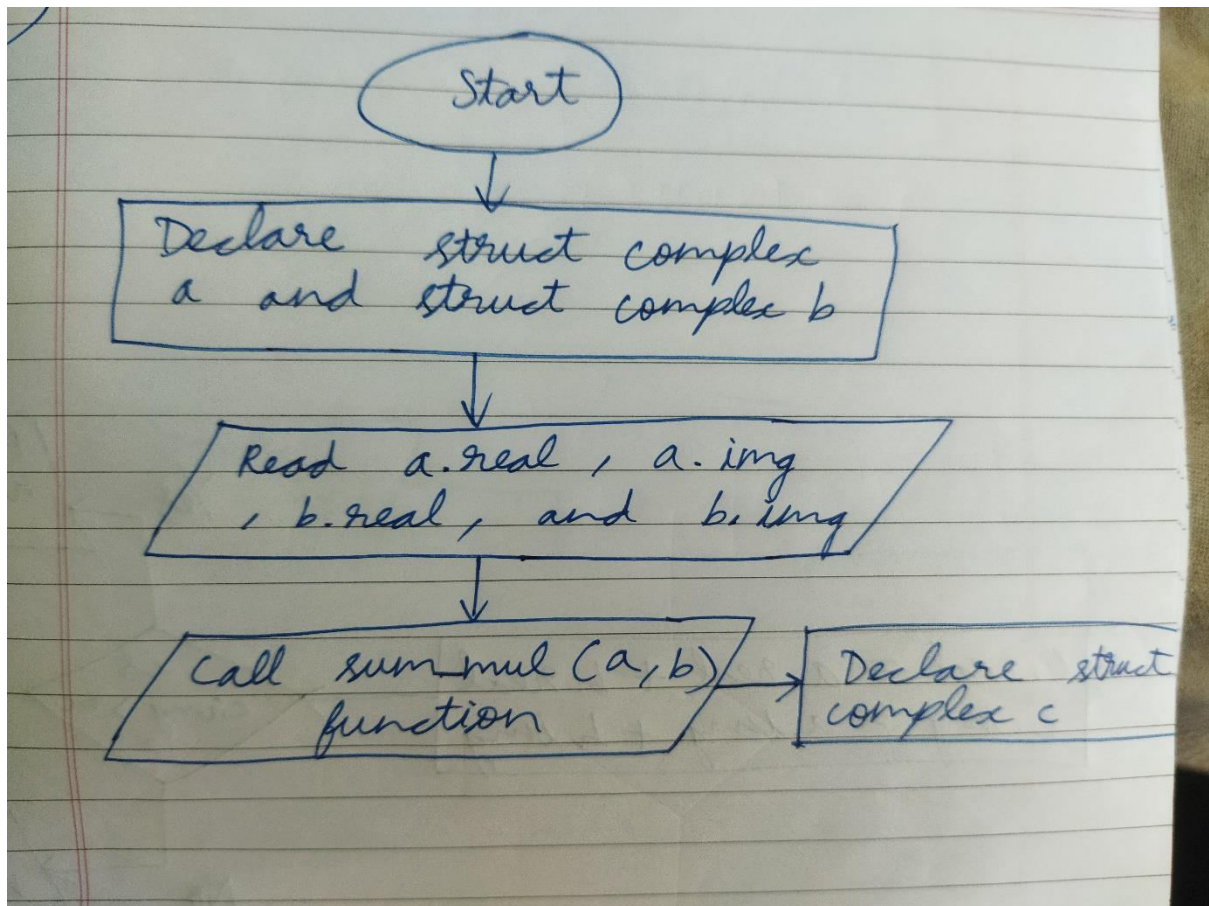 Start
Declare struct complex
a and struct complex b
Read a.real, a.img
, b.real, and b.img
Call sum_mul (a,b)
function
Declare struct
complex c